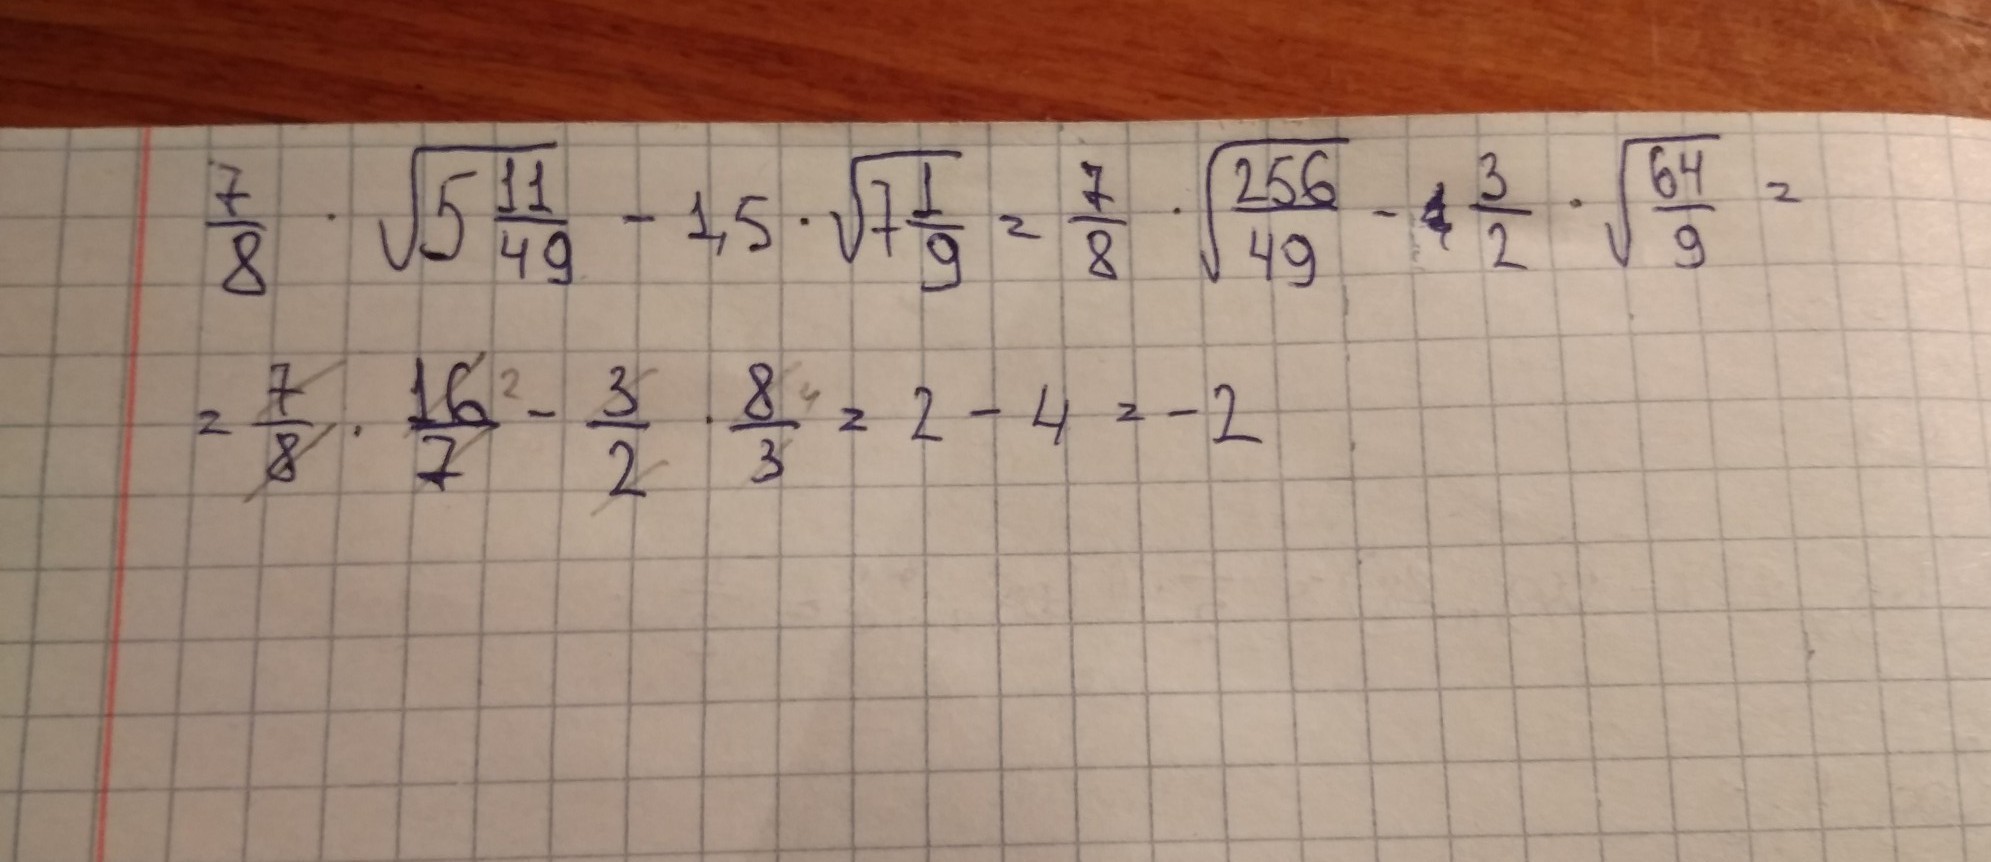 7/8 · √(5 11/49) - 1,5 · √(7 1/9) = 7/8 · √(256/49) - 3/2 · √(64/9) =
= 7/8 · 16/7 2 - 3/2 · 8/3 4 = 2 - 4 = -2